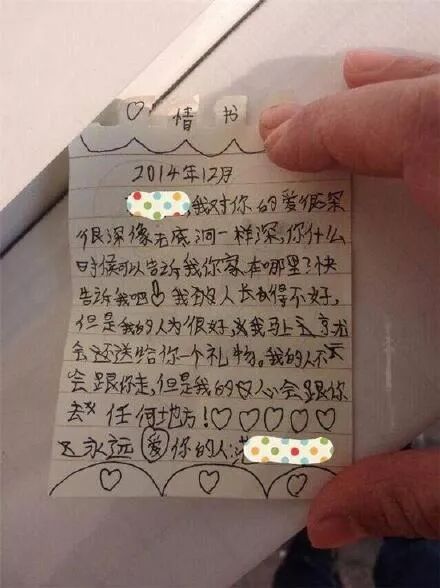 ♡情书
2014年12月
,我对你的爱很深
很深像无底洞一样深,你什么
时候可以告诉我你家在哪里?快
告诉我吧!我的人长得不好,
但是我的人为很好,我马上
会还送给你一个礼物。我的人不
会跟你走,但是我的心会跟你
去任何地方!♡♡♡♡♡
永远爱你的人: